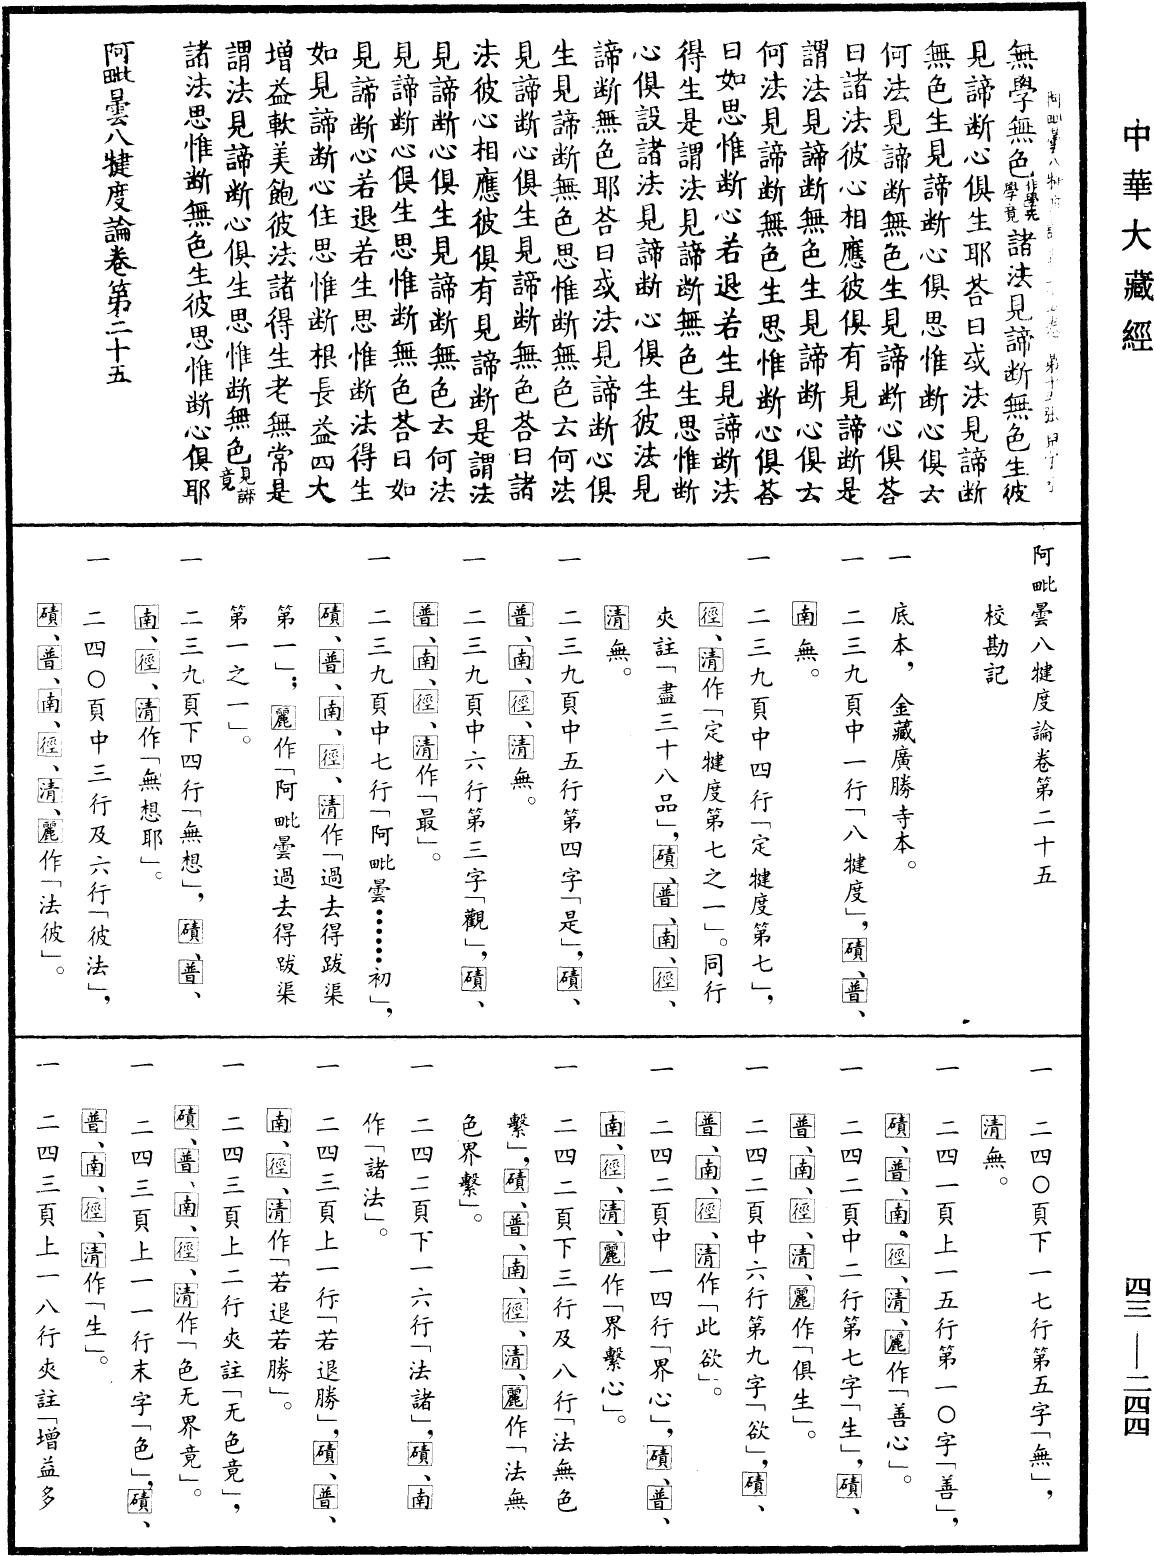 中華大藏經
無學無色作學无學竟諸法見諦断無色生彼
見諦断心俱生耶荅曰或法見諦断
無色生見諦断心俱思惟断心俱云
何法見諦断無色生見諦断心俱荅
曰諸法彼心相應彼俱有見諦断是
謂法見諦断無色生見諦断心俱云
何法見諦断無色生思惟断心俱荅
曰如思惟断心若退若生見諦断法
得生是謂法見諦断無色生思惟断
心俱設諸法見諦断心俱生彼法見
諦断無色耶荅曰或法見諦断心俱
生見諦断無色思惟断無色云何法
見諦断心俱生見諦断無色荅曰諸
法彼心相應彼俱有見諦断是謂法
見諦断心俱生見諦断無色云何法
見諦断心俱生思惟断無色荅曰如
見諦断心若退若生思惟断法得生
如見諦断心住思惟断根長益四大
增益軟美飽彼法諸得生老無常是
謂法見諦断心俱生思惟断無色見諦竟
諸法思惟断無色生彼思惟断心俱耶
阿毗曇八犍度論卷第二十五
阿毗曇八犍度論卷第二十五
校勘記
一 底本，金藏廣勝寺本。
一 二三九頁中一行「八犍度」，磧、普、
南無。
一 二三九頁中四行「定犍度第七」，
徑、清作「定犍度第七之一」。同行
夾註「盡三十八品」，磧、普、南、徑、
清無。
一 二三九頁中五行第四字「是」，磧、
普、南、徑、清無。
一 二三九頁中六行第三字「觀」，磧、
普、南、徑、清作「最」。
一 二三九頁中七行「阿毗曇……初」，
磧、普、南、徑、清作「過去得跋渠
第一」；麗作「阿毗曇過去得跋渠
第一之一」。
一 二三九頁下四行「無想」，磧、普、
南、徑、清作「無想耶」。
一 二四〇頁中三行及六行「彼法」，
磧、普、南、徑、清、麗作「法彼」。
一 二四〇頁下一七行第五字「無」，
清無。
一 二四一頁上一五行第一〇字「善」，
磧、普、南、徑、清、麗作「善心」。
一 二四二頁中二行第七字「生」，磧、
普、南、徑、清、麗作「俱生」。
一 二四二頁中六行第九字「欲」，磧、
普、南、徑、清作「此欲」。
一 二四二頁中一四行「界心」，磧、普、
南、徑、清、麗作「界繫心」。
一 二四二頁下三行及八行「法無色
繫」，磧、普、南、徑、清、麗作「法無
色界繫」。
一 二四二頁下一六行「法諸」，磧、南
作「諸法」。
一 二四三頁上一行「若退勝」，磧、普、
南、徑、清作「若退若勝」。
一 二四三頁上二行夾註「无色竟」，
磧、普、南、徑、清作「色无界竟」。
一 二四三頁上一一行末字「色」，磧、
普、南、徑、清作「生」。
一 二四三頁上一八行夾註「增益多
四三—二四四